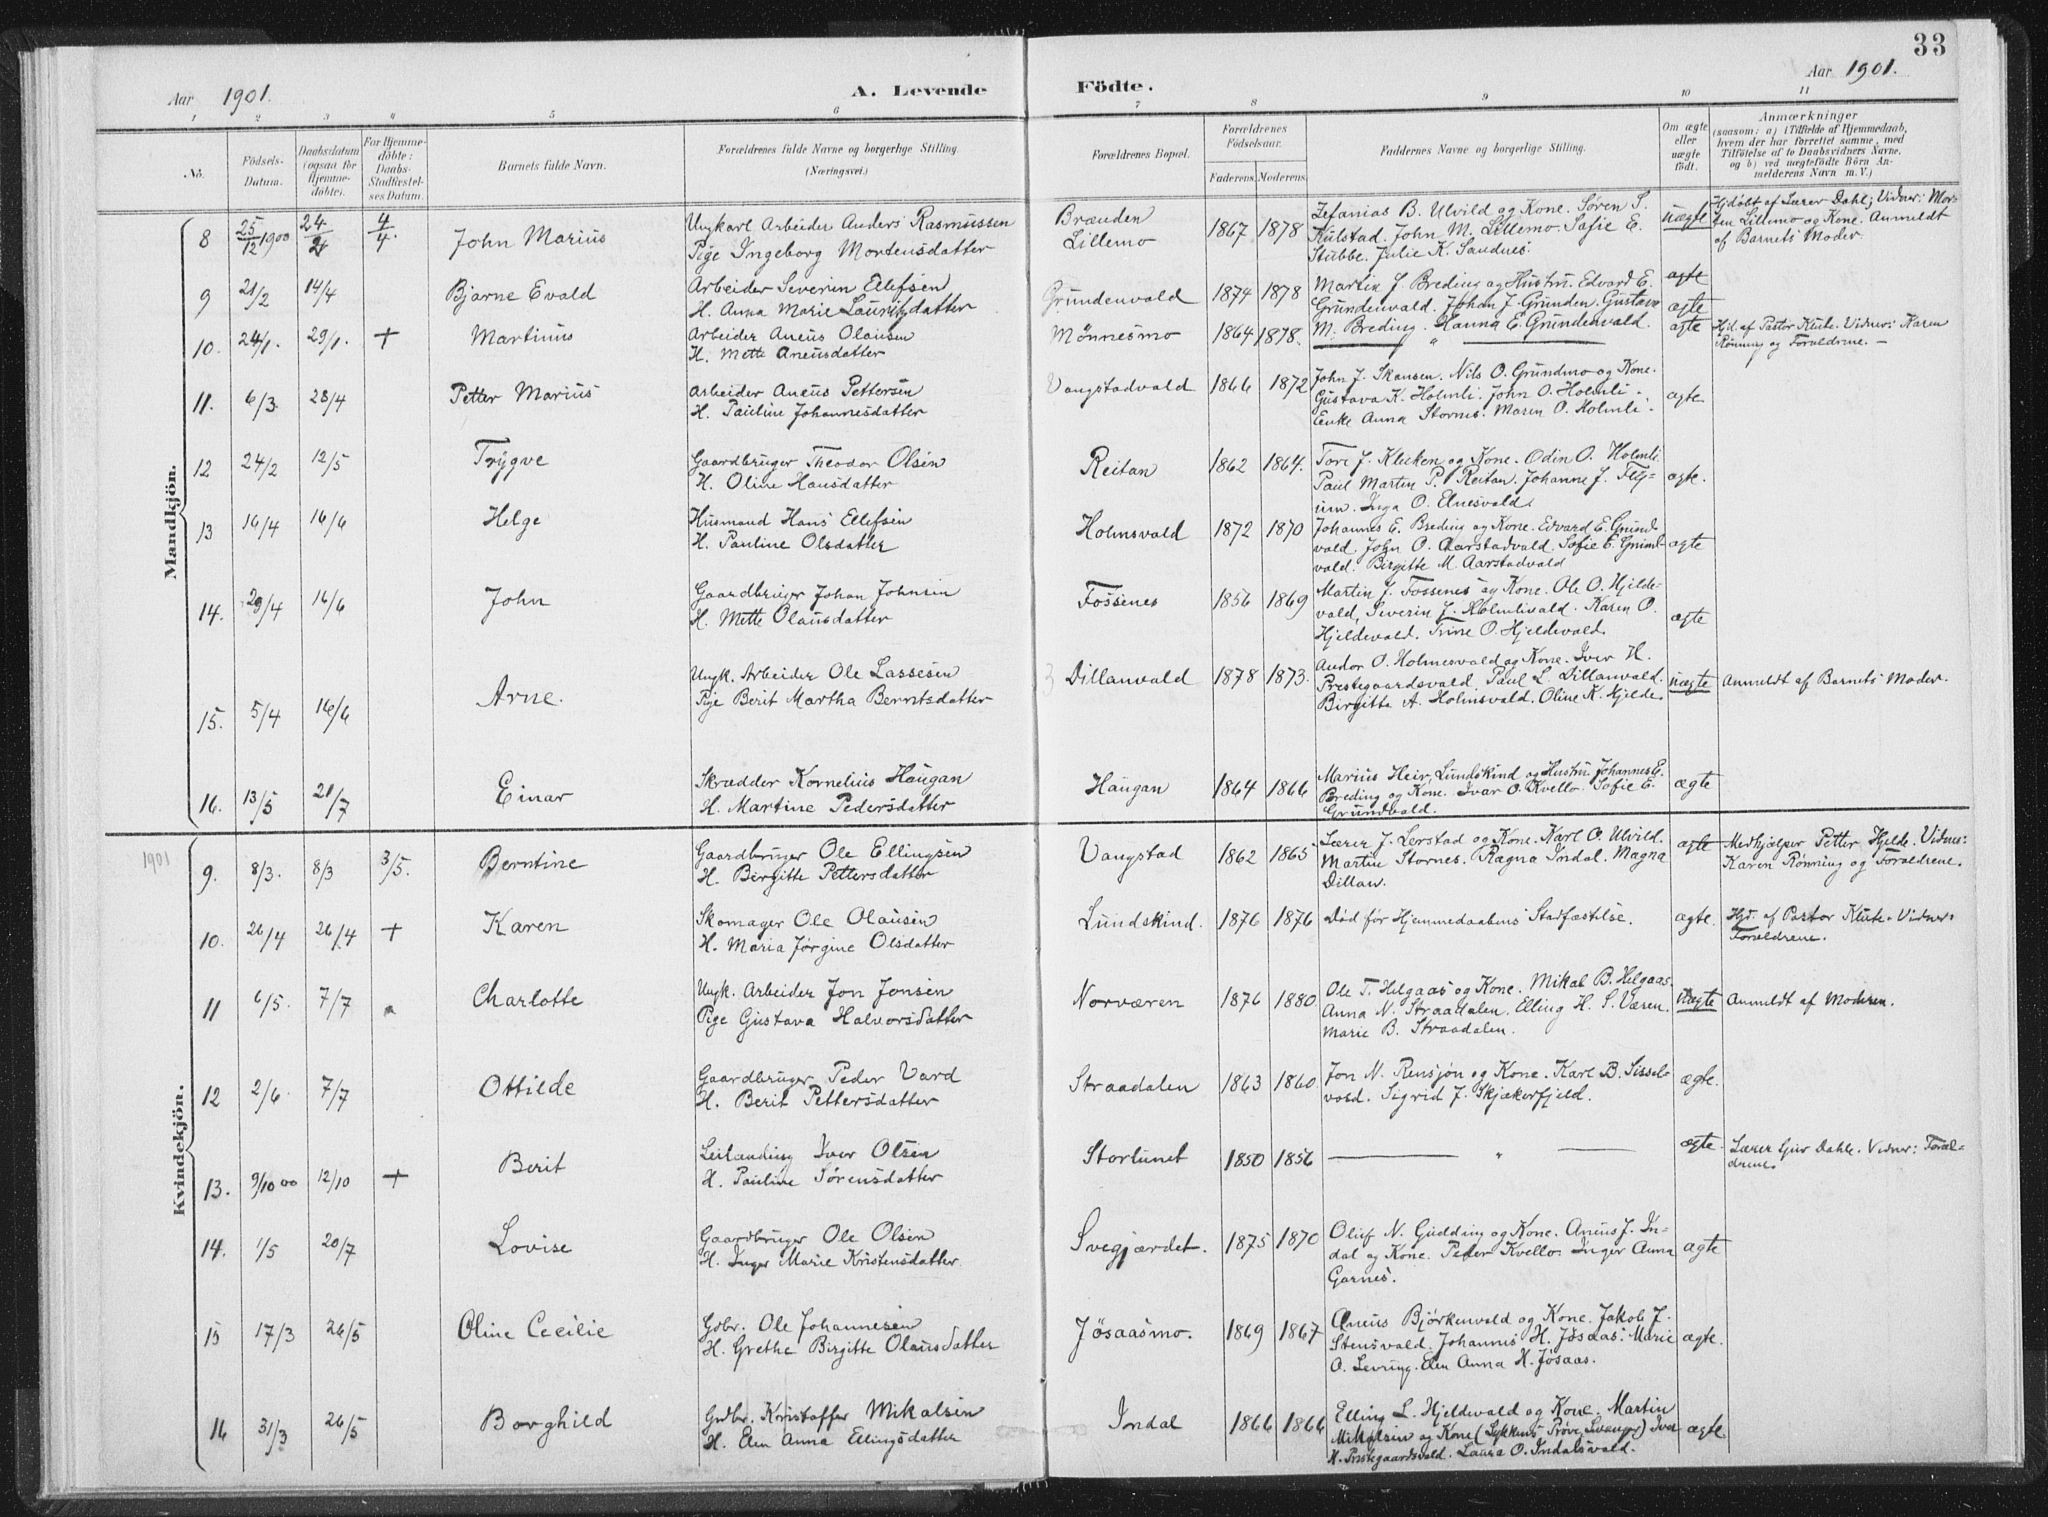 33
Aar 1901.
A. Levende Födte.
Aar 1901.
1 2 3 4 5 6 7 8 9 10 11
No.
Födsels-Datum.
Daabsdatum (ogsaa for Hjemme-döbte).
For Hjemme-döbte: Daabs-Stadfæstel-ses Datum.
Barnets fulde Navn.
Forældrenes fulde Navne og borgerlige Stilling. (Næringsvei.)
Forældrenes Bopæl.
Forældrenes Födselsaar.
Faderens. Moderens.
Faddernes Navne og borgerlige Stilling.
Om ægte eller uægte födt.
Anmærkninger
(saasom: a) i Tilfælde af Hjemmedaab, hvem der har forrettet samme, med Tilföielse af to Daabsvidners Navne, og b) ved uægtefödte Börn An-melderens Navn m. V.)
Mandkjön.
8 25/12 1900 24/2 4/4. John Marius
Ungkarl Arbeider Anders Rasmussen
Pige Ingeborg Mortensdatter
Brænden
Lillemo
1867 1878
Zefanias B. Ulvild og Kone. Søren S.
Kulstad. John M. Lillemo. Sofie E.
Stubbe. Julie K. Sandnes.
uægte
Hjdøbt af Lærer Dahl; Vidner: Mor-
ten Lillemo og Kone. Anmeldt
af Barnets Moder.
9 21/2 14/4 Bjarne Evald
Arbeider Severin Ellefsen
H. Anna Marie Lauritzdatter
Grundenvald 1874 1878
Martin J. Breding og Hustru. Edvard E.
Grundenvald. Johan J. Grunden. Gustava
M. Breding. Hanna E. Grundenvald.
ægte
ægte
10. 24/1. 29/1. + Martinus
Arbeider Aneus Olausen
H. Mette Aneusdatter
Mønnesmo 1864 1878. "
ægte
Hjd. af Pastor Klüte. Vidner: Karen
Rønning og Forældrene. —
11. 6/3. 28/4 Petter Marius
Arbeider Aneus Pettersen
H. Pauline Johannesdatter
Vangstadvald 1866 1872
John J. Skansen. Nils O. Grundmo og Kone.
Gustava K. Holmli. John O. Holmli.
Enke Anna Stornes. Maren O. Holmli.
ægte
12 24/2 12/5 Trygve
Gaardbruger Theodor Olsen
H. Oline Hansdatter
Reitan 1862 1864.
Tore J. Kleiken og Kone. Odin O. Holmli
Paul Martin P. Reitan. Johanne J.
Inga O. Elnesvald.
ægte.
13 16/4 16/6 Helge
Husmand Hans Ellefsen
H. Pauline Olsdatter
Holmsvald 1872 1870
Johannes E. Breding og Kone. Edvard E. Grund-
vald. John O. Aarstadvald. Sofie E. Grund-
vald. Birgitte M. Aarstadvald
ægte
14. 29/4 16/6 John
Gaardbruger Johan Johnsen
H. Mette Olausdatter
Fossenes 1856 1869
Martin J. Fossenes og Kone. Ole O. Hjelde-
vald, Severin J. Holmlivald. Karen O.
Hjeldevald. Trine O. Hjeldevald.
ægte
15. 5/4 16/6 Arne.
Ungk. Arbeider Ole Lassesen
Pige Berit Martha Berntsdatter
Dillanvald 1878 1873.
Andor O. Holmesvald og Kone. Iver H.
Prestegaardsvald. Paul L. Dillanvald.
Birgitta A. Holmsvald. Oline K. Hjelde.
uægte
Anmeldt af Barnets Moder.
16. 13/5 21/7 Einar
Skrædder Kornelius Haugan
H. Martine Pedersdatter
Haugan 1864 1866
Marius Heir, Lundskind og Hustru. Johannes E.
Breding og Kone. Ivar O. Kvello. Sofie E.
Grundvald.
ægte
1901
Kvindekjön.
9. 8/3. 8/3 3/5. Berntine
Gaardbruger Ole Ellingsen
H. Bergitte Pettersdatter
Vangstad 1862 1865
Lærer J. Lerstad og Kone. Karl O. Ulvild.
Martin Stornes. Ragna Indal. Magna
Dillan.
ægte
Medhjælper Petter Hjelde. Vidner:
Karen Rønning og Forældrene.
10. 26/4 26/4 + Karen
Skomager Ole Olausen
H. Maria Jørgine Olsdatter
Lundskind. 1876 1876
Død før Hjemmedaabens Stadfæstelse.
ægte.
Hjd. af Pastor Klüte. Vidner:
Forældrene.
11 6/5. 7/7 Charlotte
Ungk. Arbeider Jon Jonsen
Pige Gustava Halvorsdatter
Norværen 1876 1880
Ole T. Helgaas og Kone. Mikal B. Helgaas.
Anna N. Straadalen. Elling H. S. Væren.
Marie B. Straadalen.
uægte
Anmeldt af Moderen.
12 2/6. 7/7 Ottilde
Gaardbruger Peder Vard
H. Berit Pettersdatter
Straadalen 1863 1860.
Jon N. Rensjøn og Kone. Karl B. Sissel-
vold. Sigrid J. Skjækerfjeld.
ægte.
13. 9/10 00 12/10 + Berit
Leilænding Iver Olsen
H. Pauline Sørensdatter
Storlunet 1850 1856 — " —
ægte
Lærer Dahle. Vidner: Foræl-
drene.
14. 1/5 20/7 Lovise
Gaardbruger Ole Olsen
H. Inger Marie Kristensdatter.
Svegjærdet. 1875 1870
Oluf N. Gudding og Kone. Aneus J. In-
dal og Kone. Peder Kvello. Inger Anna
Garnes.
ægte
15 17/3 26/5 Oline Cecilie
Gdbr. Ole Johannesen
H. Grethe Birgitte Olausdatter
Jøsaasmo. 1869 1867
Aneus Bjørkenvald og Kone. Jakob J.
Stensvald. Johannes H. Jøsaas. Marie
O. Levring. Elen Anna H. Jøsaas.
ægte.
16 31/3 26/5 Borghild
Gdbr. Kristoffer Mikalsen
H. Elen Anna Ellingsdatter
Indal 1866 1866
Elling L. Hjeldevald og Kone. Martin
Mikalsen og Kone ( Iver
H. Prestegaardsvald. Laura O. Indalsvald.
ægte.